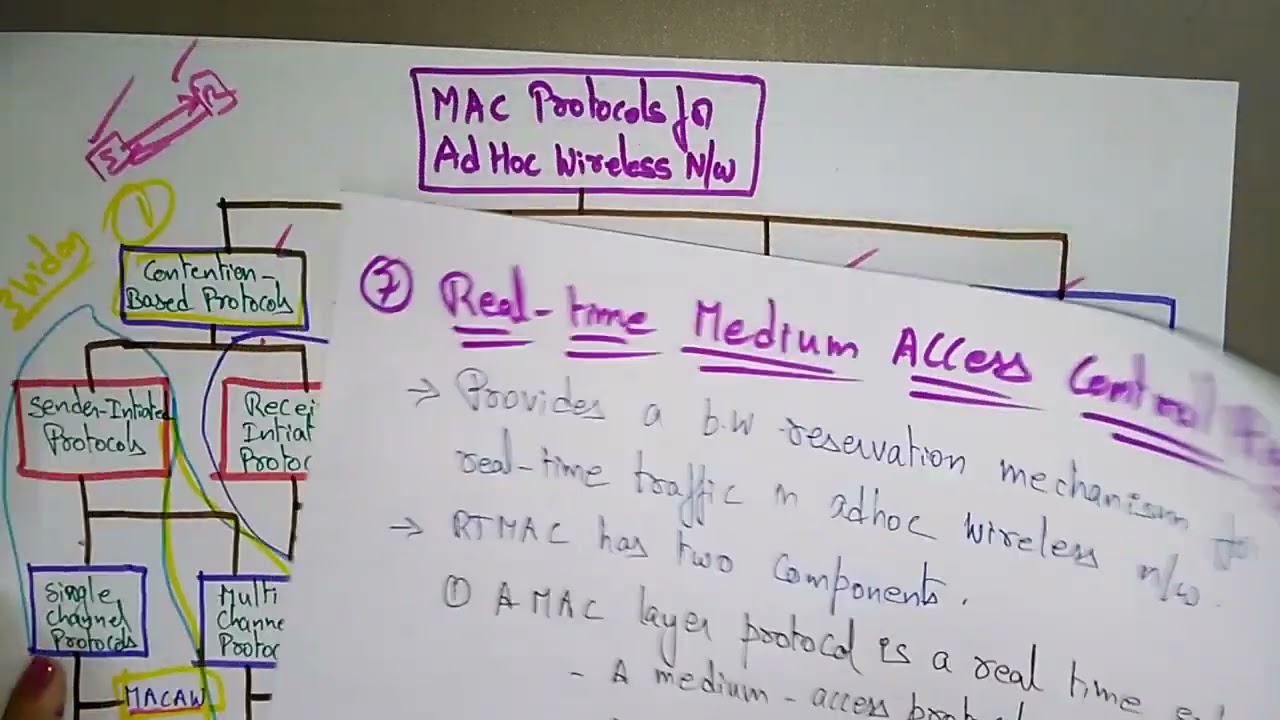 MAC Protocols for
Ad Hoc Wireless N/w
S
R
①
Contention-
Based Protocols
Sender-Intiated
Protocols
Recei
Intiat
Protoc
Single
channel
Protocols
Multi
Channe
Protoc
MACAW
⑦ Real-time Medium Access Control
→ Provides a b.w reservation mechanism for
real-time traffic in adhoc wireless n/w.
→ RTMAC has two components.
① A MAC layer protocol is a real time
- A medium-access